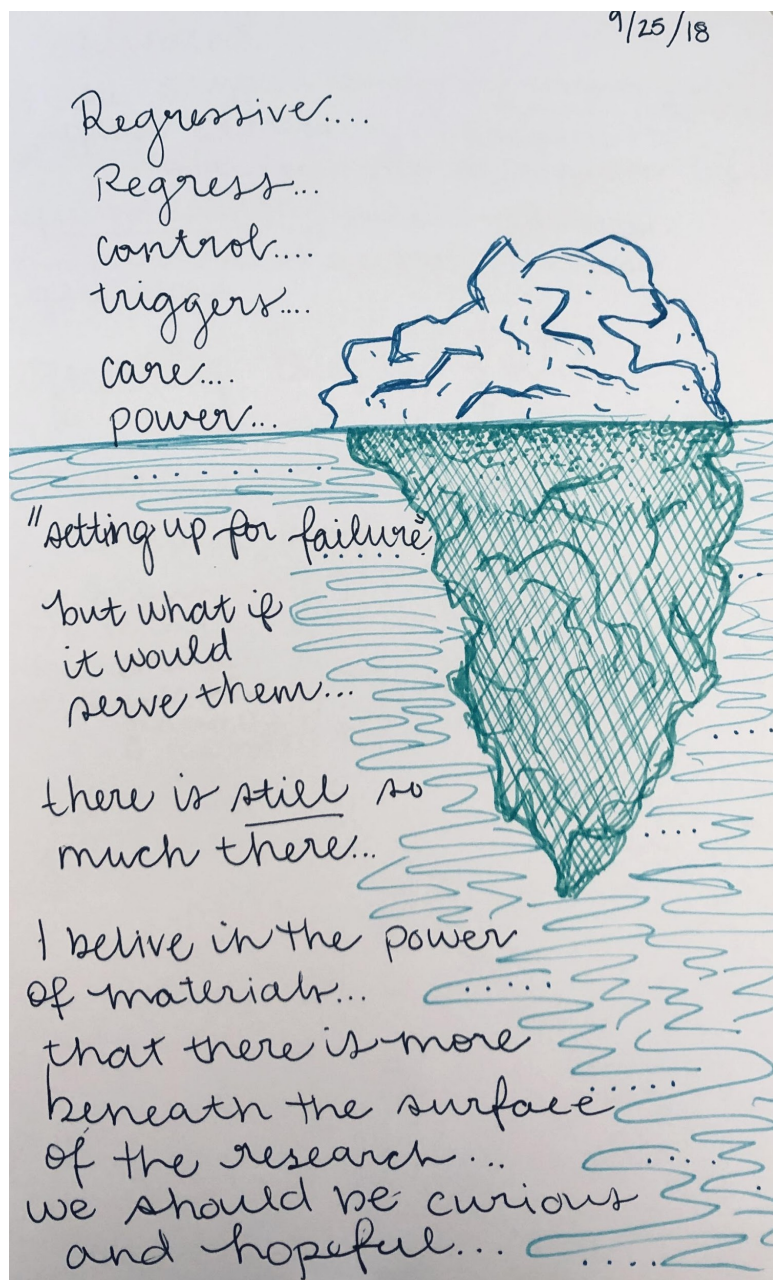 9/25/18
Regressive....
Regress...
control....
triggers....
care....
power...
"setting up for failure"
but what if
it would
serve them...
there is still so
much there...
I belive in the power
of materials...
that there is more
beneath the surface
of the research...
we should be curious
and hopeful...